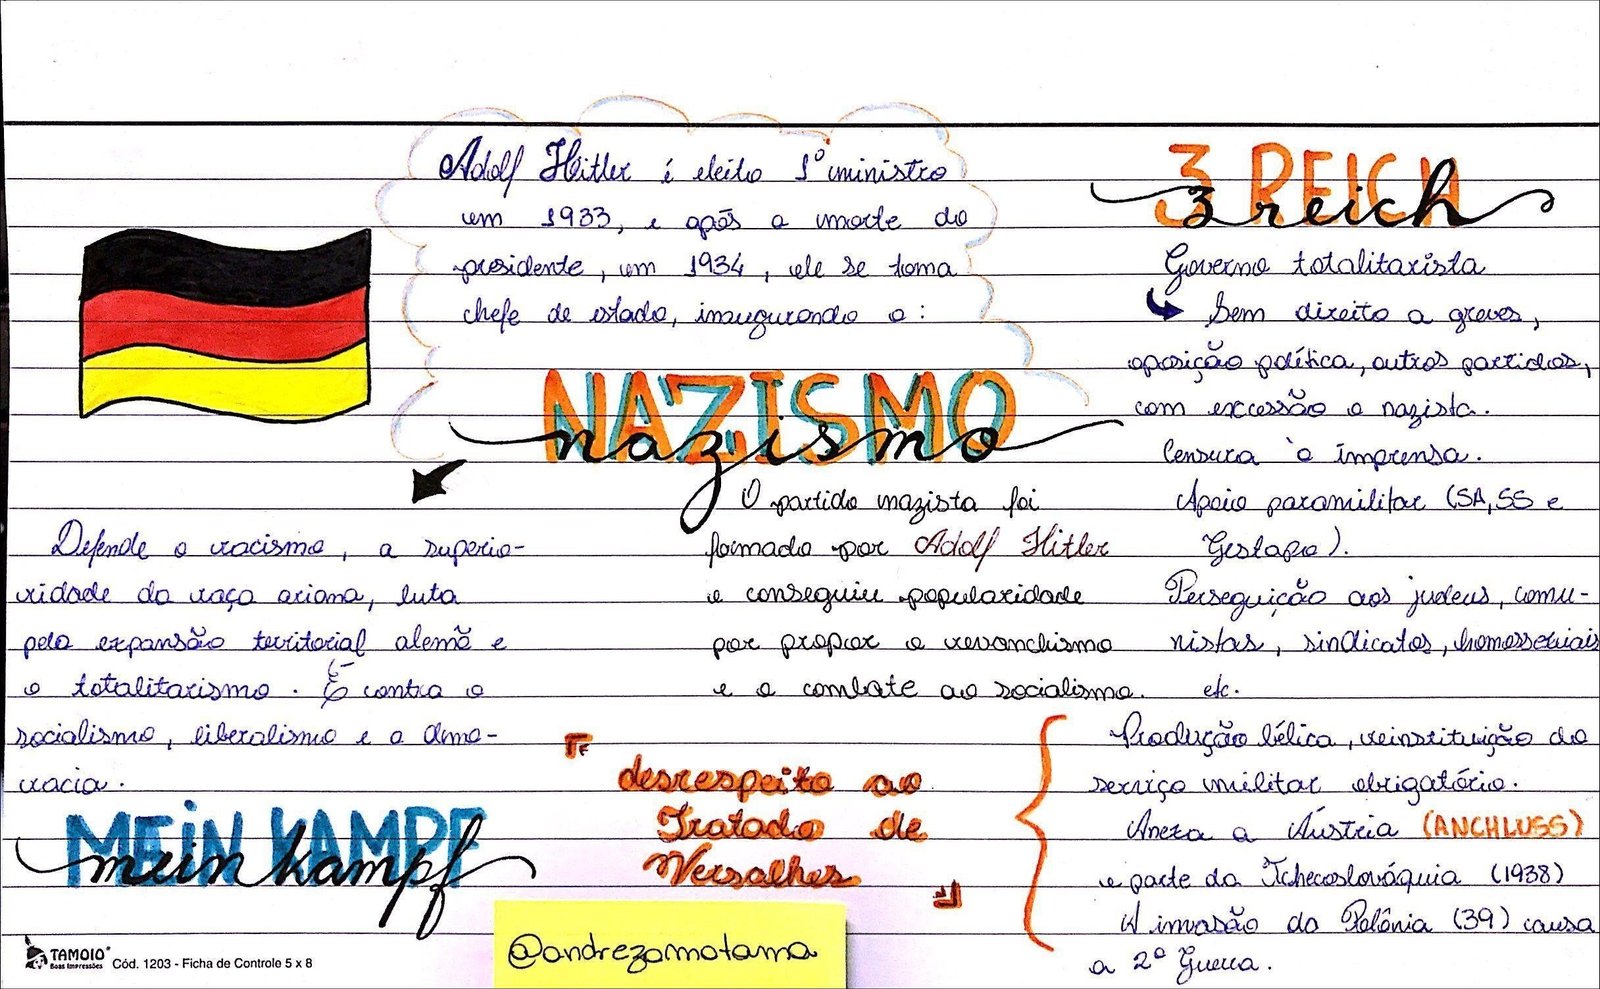 Adolf Hitler é eleito 1º ministro
em 1933, e após a morte do
presidente, em 1934, ele se torna
chefe de estado, inaugurando o:
NAZISMO
nazismo
Defende o racismo, a superio-
ridade da raça ariana, luta
pela expansão territorial alemã e
o totalitarismo. É contra o
socialismo, liberalismo e a demo-
cracia.
MEIN KAMPF
mein kampf
O partido nazista foi
formado por Adolf Hitler
e conseguiu popularidade
por propor o revanchismo
e o combate ao socialismo.
desrespeito ao
Tratado de
Versalhes
3 REICH
3 reich
Governo totalitarista
Sem direito a greves,
oposição política, outros partidos,
com excessão o nazista.
Censura à imprensa.
Apoio paramilitar (SA, SS e
Gestapo).
Perseguição aos judeus, comu-
nistas, sindicatos, homossexuais
etc.
Produção bélica, reinstituição do
serviço militar obrigatório.
Anexa a Áustria (ANCHLUSS)
e parte da Tchecoslováquia (1938)
A invasão da Polônia (39) causa
a 2ª Guerra.
@andrezamotama
TAMOIO
Boas Impressões
Cód. 1203 - Ficha de Controle 5 x 8